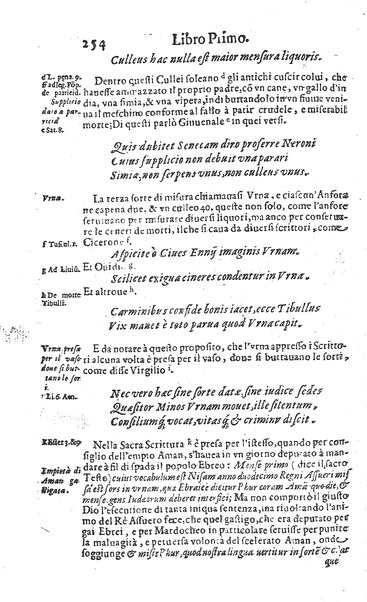 254 Libro Primo.
Culleus hac nulla est maior mensura liquoris.
d L. pena. 9.
ff. ad leg. Põp.
de parricid.
Supplicio
dato a par-
ricidi
e Sat. 8.
Dentro questi Cullei soleano d gli antichi cuscir colui, che
hauesse amazzato il proprio padre, cõ vn cane, vn gallo d'in
dia, vna simia, & vna vipera, indi buttandolo in vn fiume veni-
ua il meschino conforme al fallo à patir crudele, e miserabil
morte; Di questi parlò Giuuenale e in quei versi.
Quis dubitet Senecam diro proferre Neroni
Cuius supplicio non debuit vna parari
Simia, non serpens vnus, non culleus vnus.
Vrna.
La terza sorte di misura chiamauasi Vrna, e ciascun' Anfora
ne capena due, & vn culleo 40. queste non solo, come l'anfore
seruiuano per misurare diuersi liquori, ma anco per conserua-
re le ceneri de morti, ilche si caua da diuersi scrittori, come
f Tuscul. 2.
Cicerone f.
Aspicite ò Ciues Ennij imaginis Vrnam.
g Ad Liuiã.
Et Ouidio g.
Scilicet exigua cineres condentur in Vrna.
h De morte
Tibulli.
Et altroue h.
Carminibus confide bonis iacet, ecce Tibullus
Vix manet è toto parua quod Vrna capit.
Vrna presa
per il vaso
doue si but-
tano le sor
ti.
i Li. 6. Aen.
E da notare à questo proposito, che l'vrna appresso i Scritto-
ri alcuna volta è presa per il vaso, doue si buttauano le sorti,
come disse Virgilio i.
Nec vero hac sine sorte datæ, sine iudice sedes
Quæsitor Minos Vrnam mouet, ille silentum,
Consiliumq́; vocat, vitasq́; & crimina discit.
K Ester 3. & 9
Impietà di
Aman ca-
stigata.
Nella Sacra Scrittura k è presa per l'istesso, quando per con-
siglio dell'empio Aman, s'hauea in vn giorno deputato à man-
dare à fil di spada il popolo Ebreo: Mense primo (dice il, sacro
Testo) cuius vocabulum est Nisam anno duodecimo Regni Assueri mis
sa est sors in vrnam, quæ Ebraicè dicitur Phur coram Amã quo die, &
mense gens Iudæorum deberet interfici; Ma non comportò il giusto
Dio l'esecutione di tanta iniqua sentenza, ma riuoltando l'ani-
mo del Rè Assuero fece, che quel gastigo, che era deputato per
gai Ebrei, e per Mardocheo in particolare seruisse per punire
la maluagità, e peruersa volontà del scelerato Aman, onde
soggiunge & missi Phur, quod nostra lingua uertitur in sortẽ & c. at
que